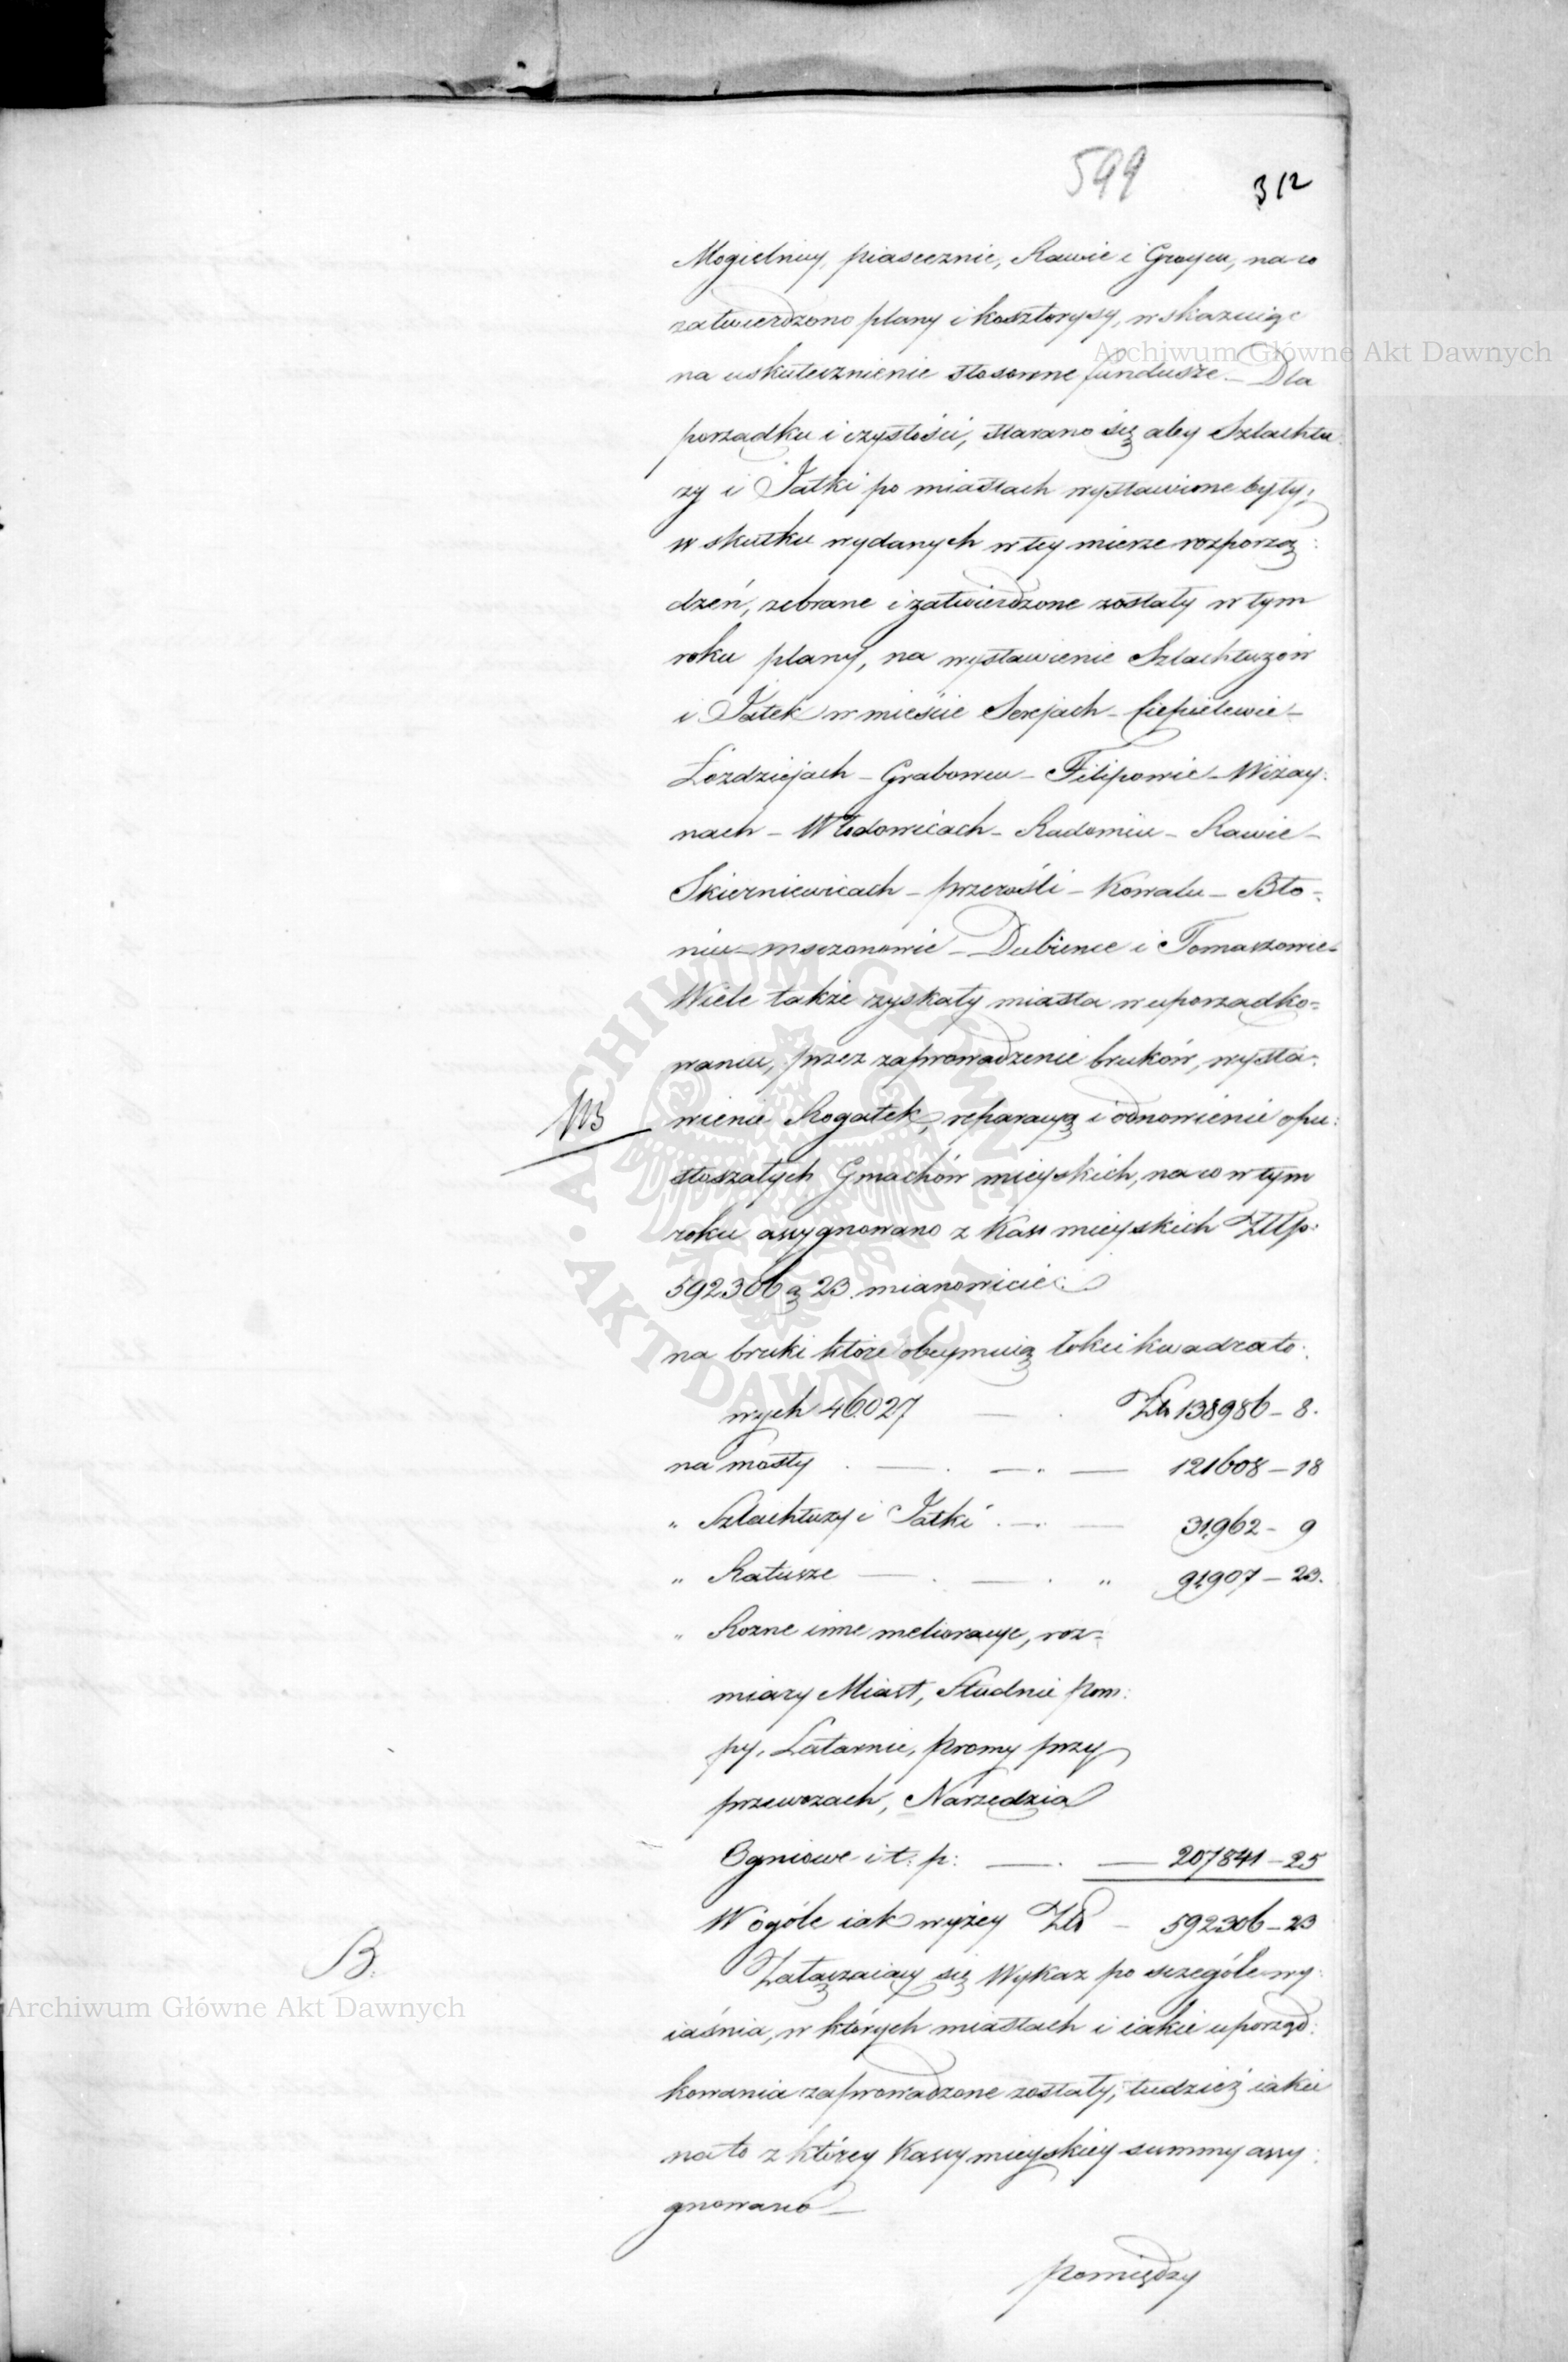 599
312
Mogielnicy, piasecznie, Rawie i Groycu, na co
zatwierdzono plany i kosztorysy, wskazuiąc
na uskutecznienie stosowne fundusze. – Dla
porządku i czystości, starano się aby Szlachtu:
zy i Jatki po miastach wystawione były;
w skutku wydanych w tey mierze rozporzą:
dzeń, zebrane i zatwierdzone zostały w tym
roku plany, na wystawienie Szlachtuzów
i Jatek w mieście Serejach – Ciepielewie –
Łozdziejach – Grabowcu – Filipowie – Wiżay:
nach – Włodowicach – Radomiu – Rawie –
Skierniewicach – przerośli – Kowalu – Bło-
niu – mszczonowie – Dubience i Tomaszowie –
Wiele także zyskały miasta w uporządko-
waniu, przez zaprowadzenie bruków, wysta-
NB
wienie Rogatek, reparacyą i odnowienie opu:
stoszałych Gmachów mieyskich, na co w tym
roku assygnowano z Kass mieyskich Złłp:
592306 g 23. mianowicie:
na bruki które obeymuią łokci kwadrato:
wych 46027 — . Złł 138986 – 8.
na mosty . — . — . — 121608 – 18
„ Szlachtuzy i Jatki . — . — 31,962 – 9
„ Ratusze — . — . „ 91,907 – 23.
„ Rozne inne melioracye, roz-
miary Miast, Studnie Pom:
py, Latarnie, Promy przy
przewozach, Narzędzia
Ogniowe i t. p: — . — 207841 – 25
W ogóle iak wyżey Złł – 592306 – 23
B.
Załączaiący się Wykaz po szczególe wy:
iaśnia, w których miastach i iakie uporząd:
kowania zaprowadzone zostały; tudzież iakie
na to z którey Kassy mieyskiey summy assy:
gnowano –
Pomiędzy
Archiwum Główne Akt Dawnych
Archiwum Główne Akt Dawnych
ARCHIWUM GŁÓWNE
AKT DAWNYCH